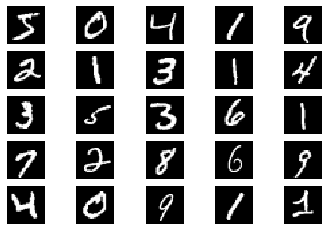 5 0 4 1 9
2 1 3 1 4
3 5 3 6 1
7 2 8 6 9
4 0 9 1 1